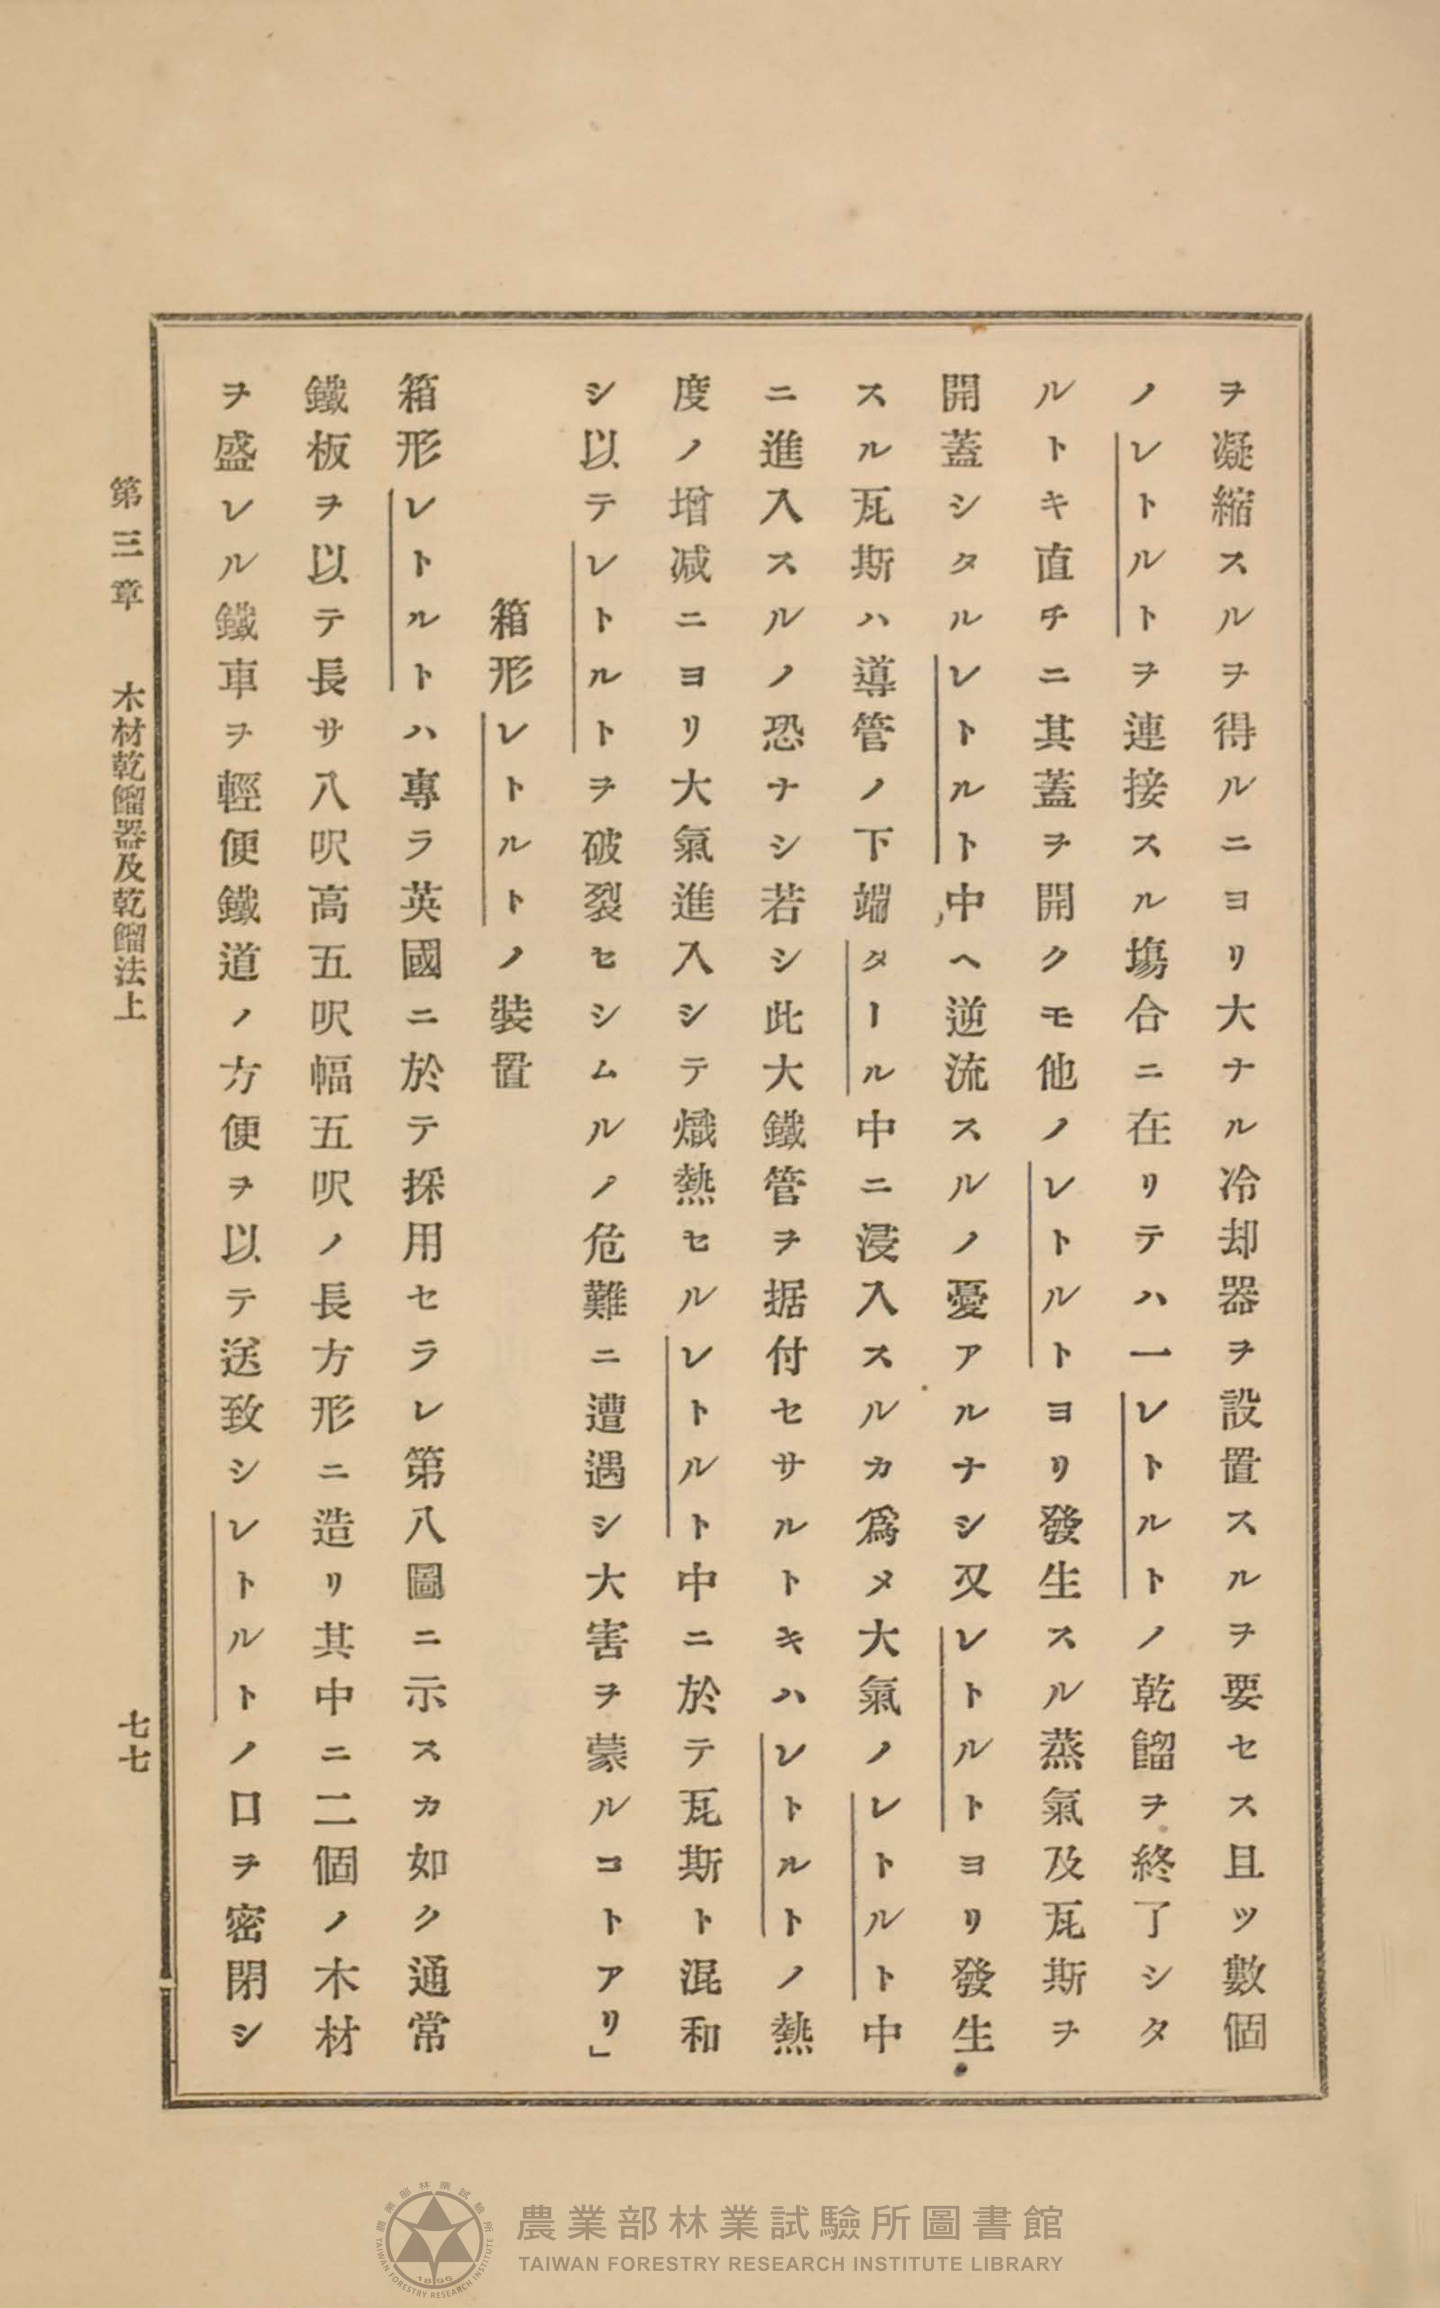 ヲ凝縮スルヲ得ルニヨリ大ナル冷却器ヲ設置スルヲ要セス且ツ數個
ノレトルトヲ連接スル塲合ニ在リテハ一レトルトノ乾餾ヲ終了シタ
ルトキ直チニ其蓋ヲ開クモ他ノレトルトヨリ發生スル蒸氣及瓦斯ヲ
開蓋シタルレトルト中ヘ逆流スルノ憂アルナシ又レトルトヨリ發生
スル瓦斯ハ導管ノ下端タール中ニ浸入スルカ爲メ大氣ノレトルト中
ニ進入スルノ恐ナシ若シ此大鐵管ヲ据付セサルトキハレトルトノ熱
度ノ增减ニヨリ大氣進入シテ熾熱セルレトルト中ニ於テ瓦斯ト混和
シ以テレトルトヲ破裂セシムルノ危難ニ遭遇シ大害ヲ蒙ルコトアリ」
箱形レトルトノ裝置
箱形レトルトハ專ラ英國ニ於テ採用セラレ第八圖ニ示スカ如ク通常
鐵板ヲ以テ長サ八呎高五呎幅五呎ノ長方形ニ造リ其中ニ二個ノ木材
ヲ盛レル鐵車ヲ輕便鐵道ノ方便ヲ以テ送致シレトルトノ口ヲ密閉シ
第三章 木材乾餾器及乾餾法上 七七
農業部林業試驗所圖書館
TAIWAN FORESTRY RESEARCH INSTITUTE LIBRARY
農業部林業試驗所
TAIWAN FORESTRY RESEARCH INSTITUTE
1896